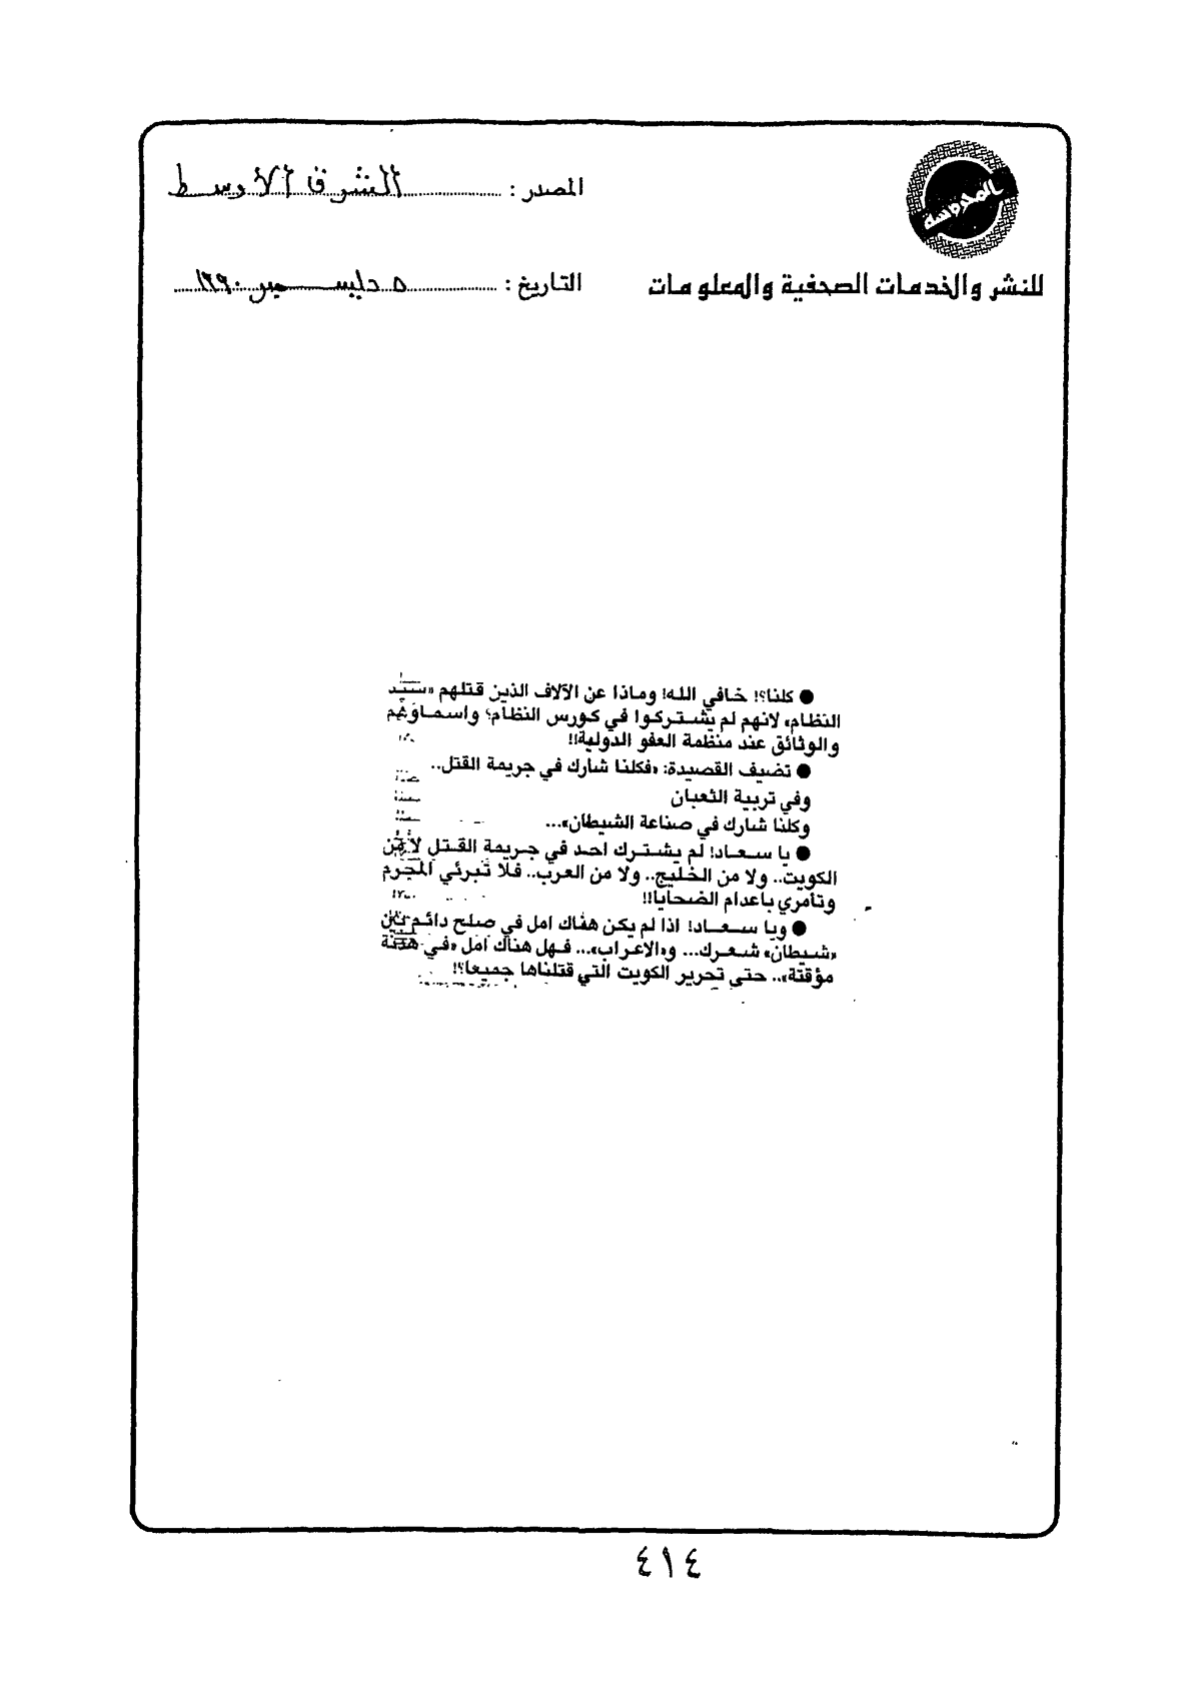 المحروسة
المصدر : الشرق الأوسط
للنشر والخدمات الصحفية والمعلومات
التاريخ : ٥ ديسمبر ١٩٩٠
● كلنا؟! خافي الله! وماذا عن الآلاف الذين قتلهم «سيد
النظام» لانهم لم يشتركوا في كورس النظام؟ واسماؤهم
والوثائق عند منظمة العفو الدولية!!
● تضيف القصيدة: «فكلنا شارك في جريمة القتل..
وفي تربية الثعبان
وكلنا شارك في صناعة الشيطان»...
● يا سعاد! لم يشترك احد في جريمة القتل لا من
الكويت.. ولا من الخليج.. ولا من العرب.. فلا تبرئي المجرم
وتأمري باعدام الضحايا!!
● ويا سعاد! اذا لم يكن هناك امل في صلح دائم بين
«شيطان» شعرك... و«الاعراب»... فهل هناك امل «في هدنة
مؤقتة».. حتى تحرير الكويت التي قتلناها جميعا؟!
٤١٤